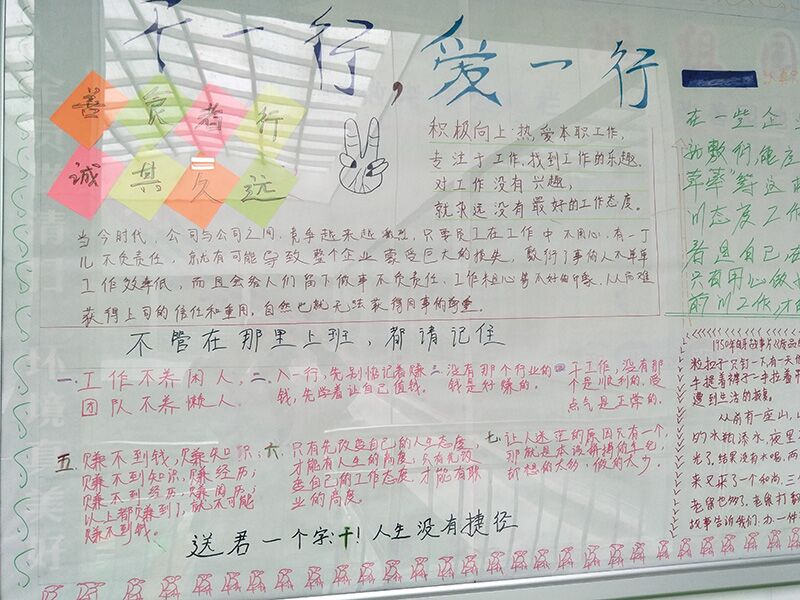 干一行，爱一行
善良者行
诚其久远
积极向上，热爱本职工作，
专注于工作，找到工作的乐趣，
对工作没有兴趣，
就永远没有最好的工作态度。
当今时代，公司与公司之间，竞争越来越激烈，只要员工在工作中不用心，有一丁
儿不负责任，就有可能导致整个企业蒙受巨大的损失，敷衍了事的人不单单
工作效率低，而且会给人们留下做事不负责任、工作粗心等不好的印象，从而难
获得上司的信任和重用，自然也就无法获得同事的尊重。
不管在那里上班，都请记住
一、工作不养闲人，
团队不养懒人。
二、入一行，先别惦记着赚
钱，先学着让自己值钱。
三、没有那个行业的
钱是好赚的。
干工作，没有那
个是顺利的，受
点气是正常的。
五、赚不到钱，赚知识；
赚不到知识，赚经历；
赚不到经历，赚阅历；
以上都赚到了，就不可能
赚不到钱。
六、只有先改变自己的人生态度，
才能有人生的高度，只有先改
变自己的工作态度，才能有职
业的高度。
七、让人迷茫的原因只有一个
那就是本该拼搏的年纪，
却想的太多，做的太少。
送君一个字：干！人生没有捷径
在一些企
态度工作
看是自己在
只有用心做
前川工作，才
1950年的
粒扣子只钉一下，有一天
手提着裤子一手拉着
遭到生活的报复。
从前有座山，山
的水瓶添水，夜里
光了。结果没有水喝，两
来又来了一个和尚，三个
故事告诉我们：办一件